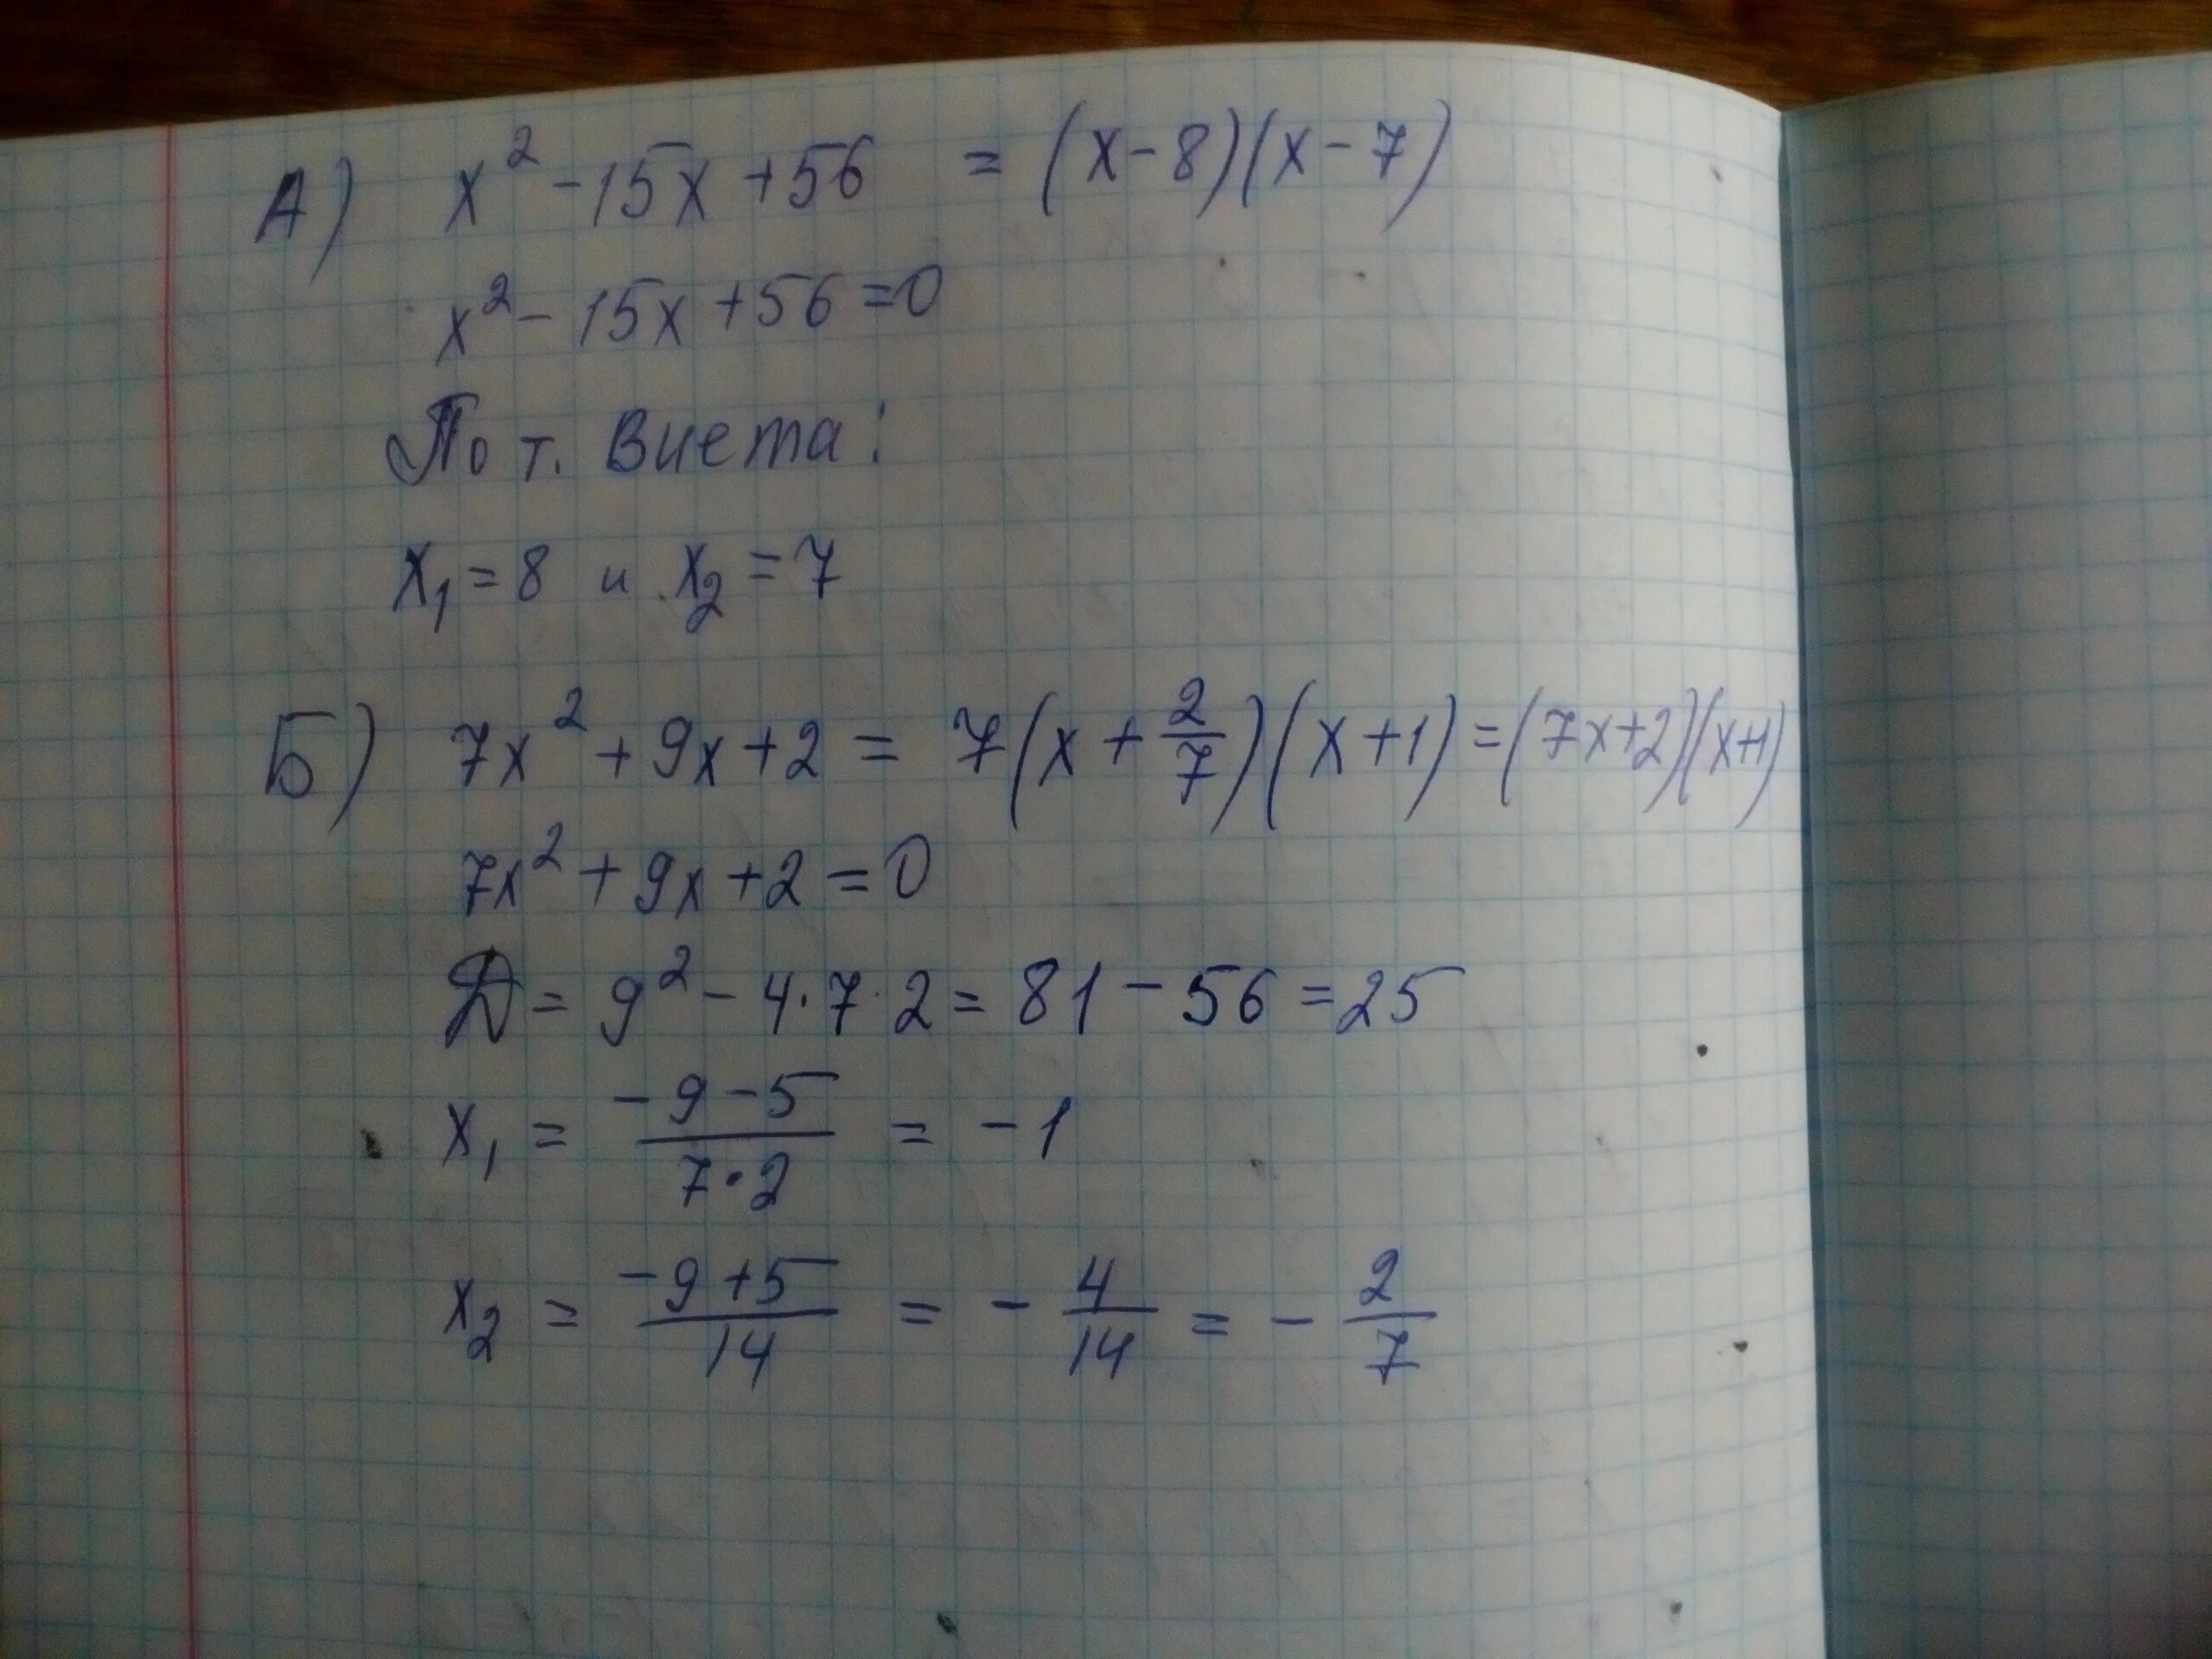 А) x² - 15x + 56 = (x - 8)(x - 7)
x² - 15x + 56 = 0
По т. Виета:
x₁ = 8 и x₂ = 7
Б) 7x² + 9x + 2 = 7(x + 2/7)(x + 1) = (7x + 2)(x + 1)
7x² + 9x + 2 = 0
Д = 9² - 4 · 7 · 2 = 81 - 56 = 25
x₁ = (-9 - 5)/(7 · 2) = -1
x₂ = (-9 + 5)/14 = -4/14 = -2/7